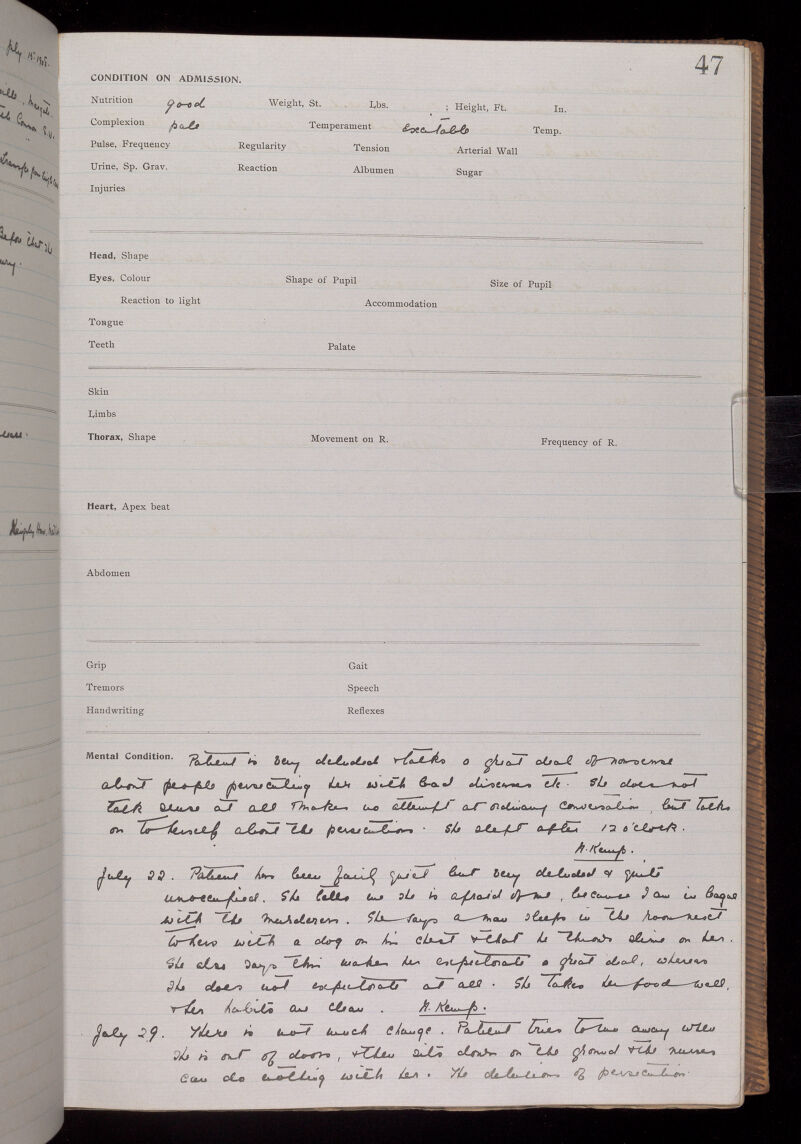 47
CONDITION ON ADMISSION.
Nutrition good Weight, St. Lbs. ; Height, Ft. In.
Complexion pale Temperament Excitable Temp.
Pulse, Frequency Regularity Tension Arterial Wall
Urine, Sp. Grav. Reaction Albumen Sugar
Injuries
Head, Shape
Eyes, Colour Shape of Pupil Size of Pupil
Reaction to light Accommodation
Tongue
Teeth Palate
Skin
Limbs
Thorax, Shape Movement on R. Frequency of R.
Heart, Apex beat
Abdomen
Grip Gait
Tremors Speech
Handwriting Reflexes
Mental Condition. Patient is very deluded & talks a great deal of nonsense
about people persecuting her with bad diseases etc. She does not
talk sense at all & makes no attempt at ordinary conversation, but talks
on to herself about the persecutions. She slept after 12 o'clock.
N. Kemp.
July 22. Patient has been fairly quiet but very deluded & quite
unoccupied. She tells me she is afraid of me, because I am in league
with the murderers. She says a man sleeps in the room next
to hers with a dog on his chest & that he throws slime on her.
She also says this makes her expectorate a great deal, whereas
she does not expectorate at all. She takes her food well,
& her habits are clean. N. Kemp.
July 29. There is not much change. Patient tries to run away when
she is out of doors, & then sits down on the ground & the nurses
can do nothing with her. The delusions of persecution